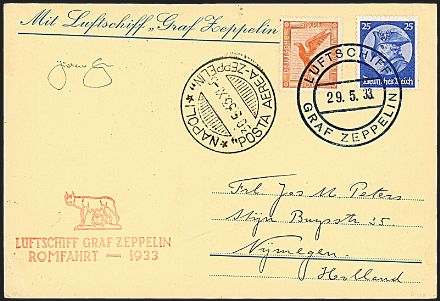 Mit Luftschiff „Graf Zeppelin
25
LUFTSCHIFF
29.5.33
GRAF ZEPPELIN
* NAPOLI *
"POSTA AEREA-ZEPPELIN"
LUFTSCHIFF GRAF ZEPPELIN
ROMFAHRT — 1933
Frl. Jes M Peters
Stijn Buysstr 35
Nijmegen
Holland